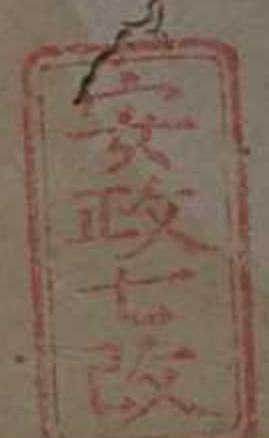 安政七改